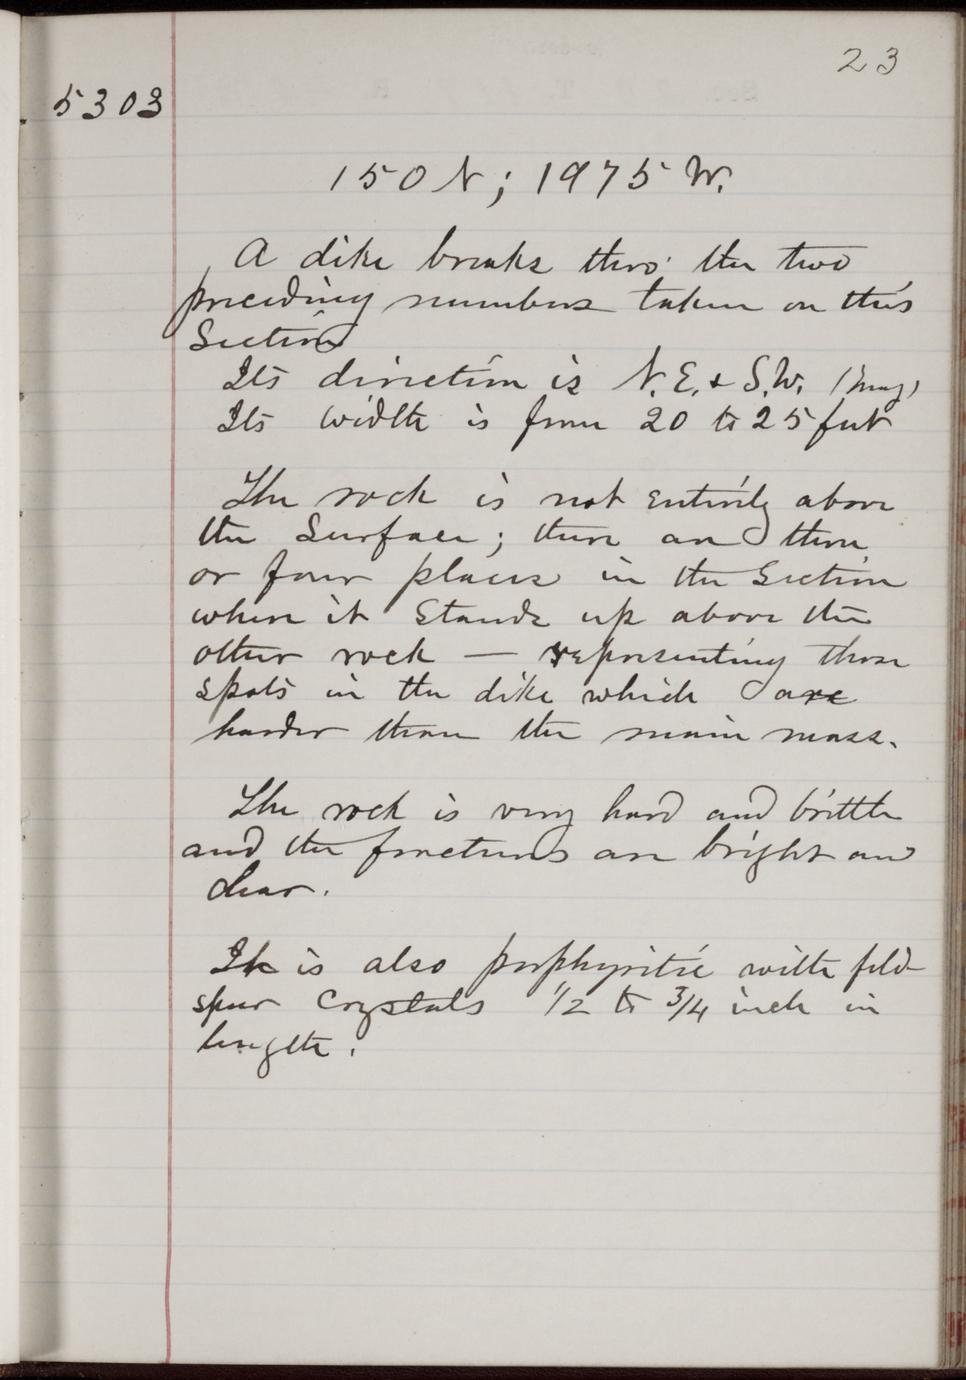 23
5303
150 N; 1975 W.
A dike breaks thro' the two
preceding numbers taken on this
Section
Its direction is N.E. & S.W. (Mag)
Its width is from 20 to 25 feet
The rock is not entirely above
the Surface; there are three
or four places in the Section
where it Stands up above the
other rock — representing those
spots in the dike which are
harder than the main mass.
The rock is very hard and brittle
and the fractures are bright and
clear.
It is also porphyritic with feld-
spar Crystals 1/2 to 3/4 inch in
length.